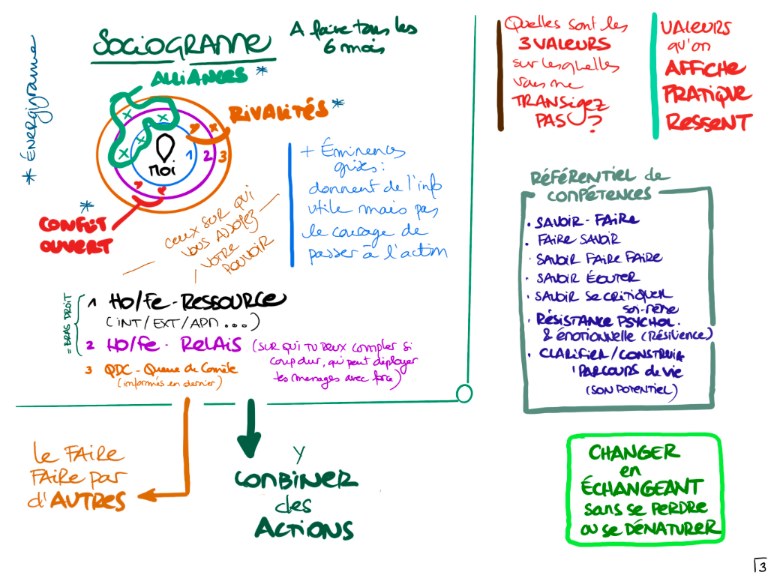 SOCIOGRAMME
A faire tous les
6 mois
* ÉNERGIGRAMME
ALLIANCES *
RIVALITÉS *
MOI
1 2 3
*
CONFLIT
OUVERT
CEUX SUR QUI
VOUS
VOTRE
POUVOIR
+ Éminences
grises :
donnent de l'info
utile mais pas
le courage de
passer à l'action
= BRAS DROIT
1 HO/FE - RESSOURCE
(INT/EXT/APM ...)
2 HO/FE - RELAIS (SUR QUI TU PEUX compter si
coup dur, qui peut déployer
tes messages avec force)
3 QDC - Queue de Comète
(informés en dernier)
le FAIRE
FAIRE par
d'AUTRES
Y
COMBINER
des
ACTIONS
Quelles sont les
3 VALEURS
sur lesquelles
vous ne
TRANSIGEZ
PAS ?
VALEURS
qu'on
AFFICHE
PRATIQUE
RESSENT
RÉFÉRENTIEL de
COMPÉTENCES
• SAVOIR-FAIRE
• FAIRE SAVOIR
SAVOIR FAIRE FAIRE
• SAVOIR ÉCOUTER
• SAVOIR SE CRITIQUER
soi-même
• RÉSISTANCE PSYCHOL.
& ÉMOTIONNELLE (Résilience)
• CLARIFIER/CONSTRUIRE
1 PARCOURS de VIE
(SON POTENTIEL)
CHANGER
en
ÉCHANGEANT
sans se PERDRE
ou se DÉNATURER
3